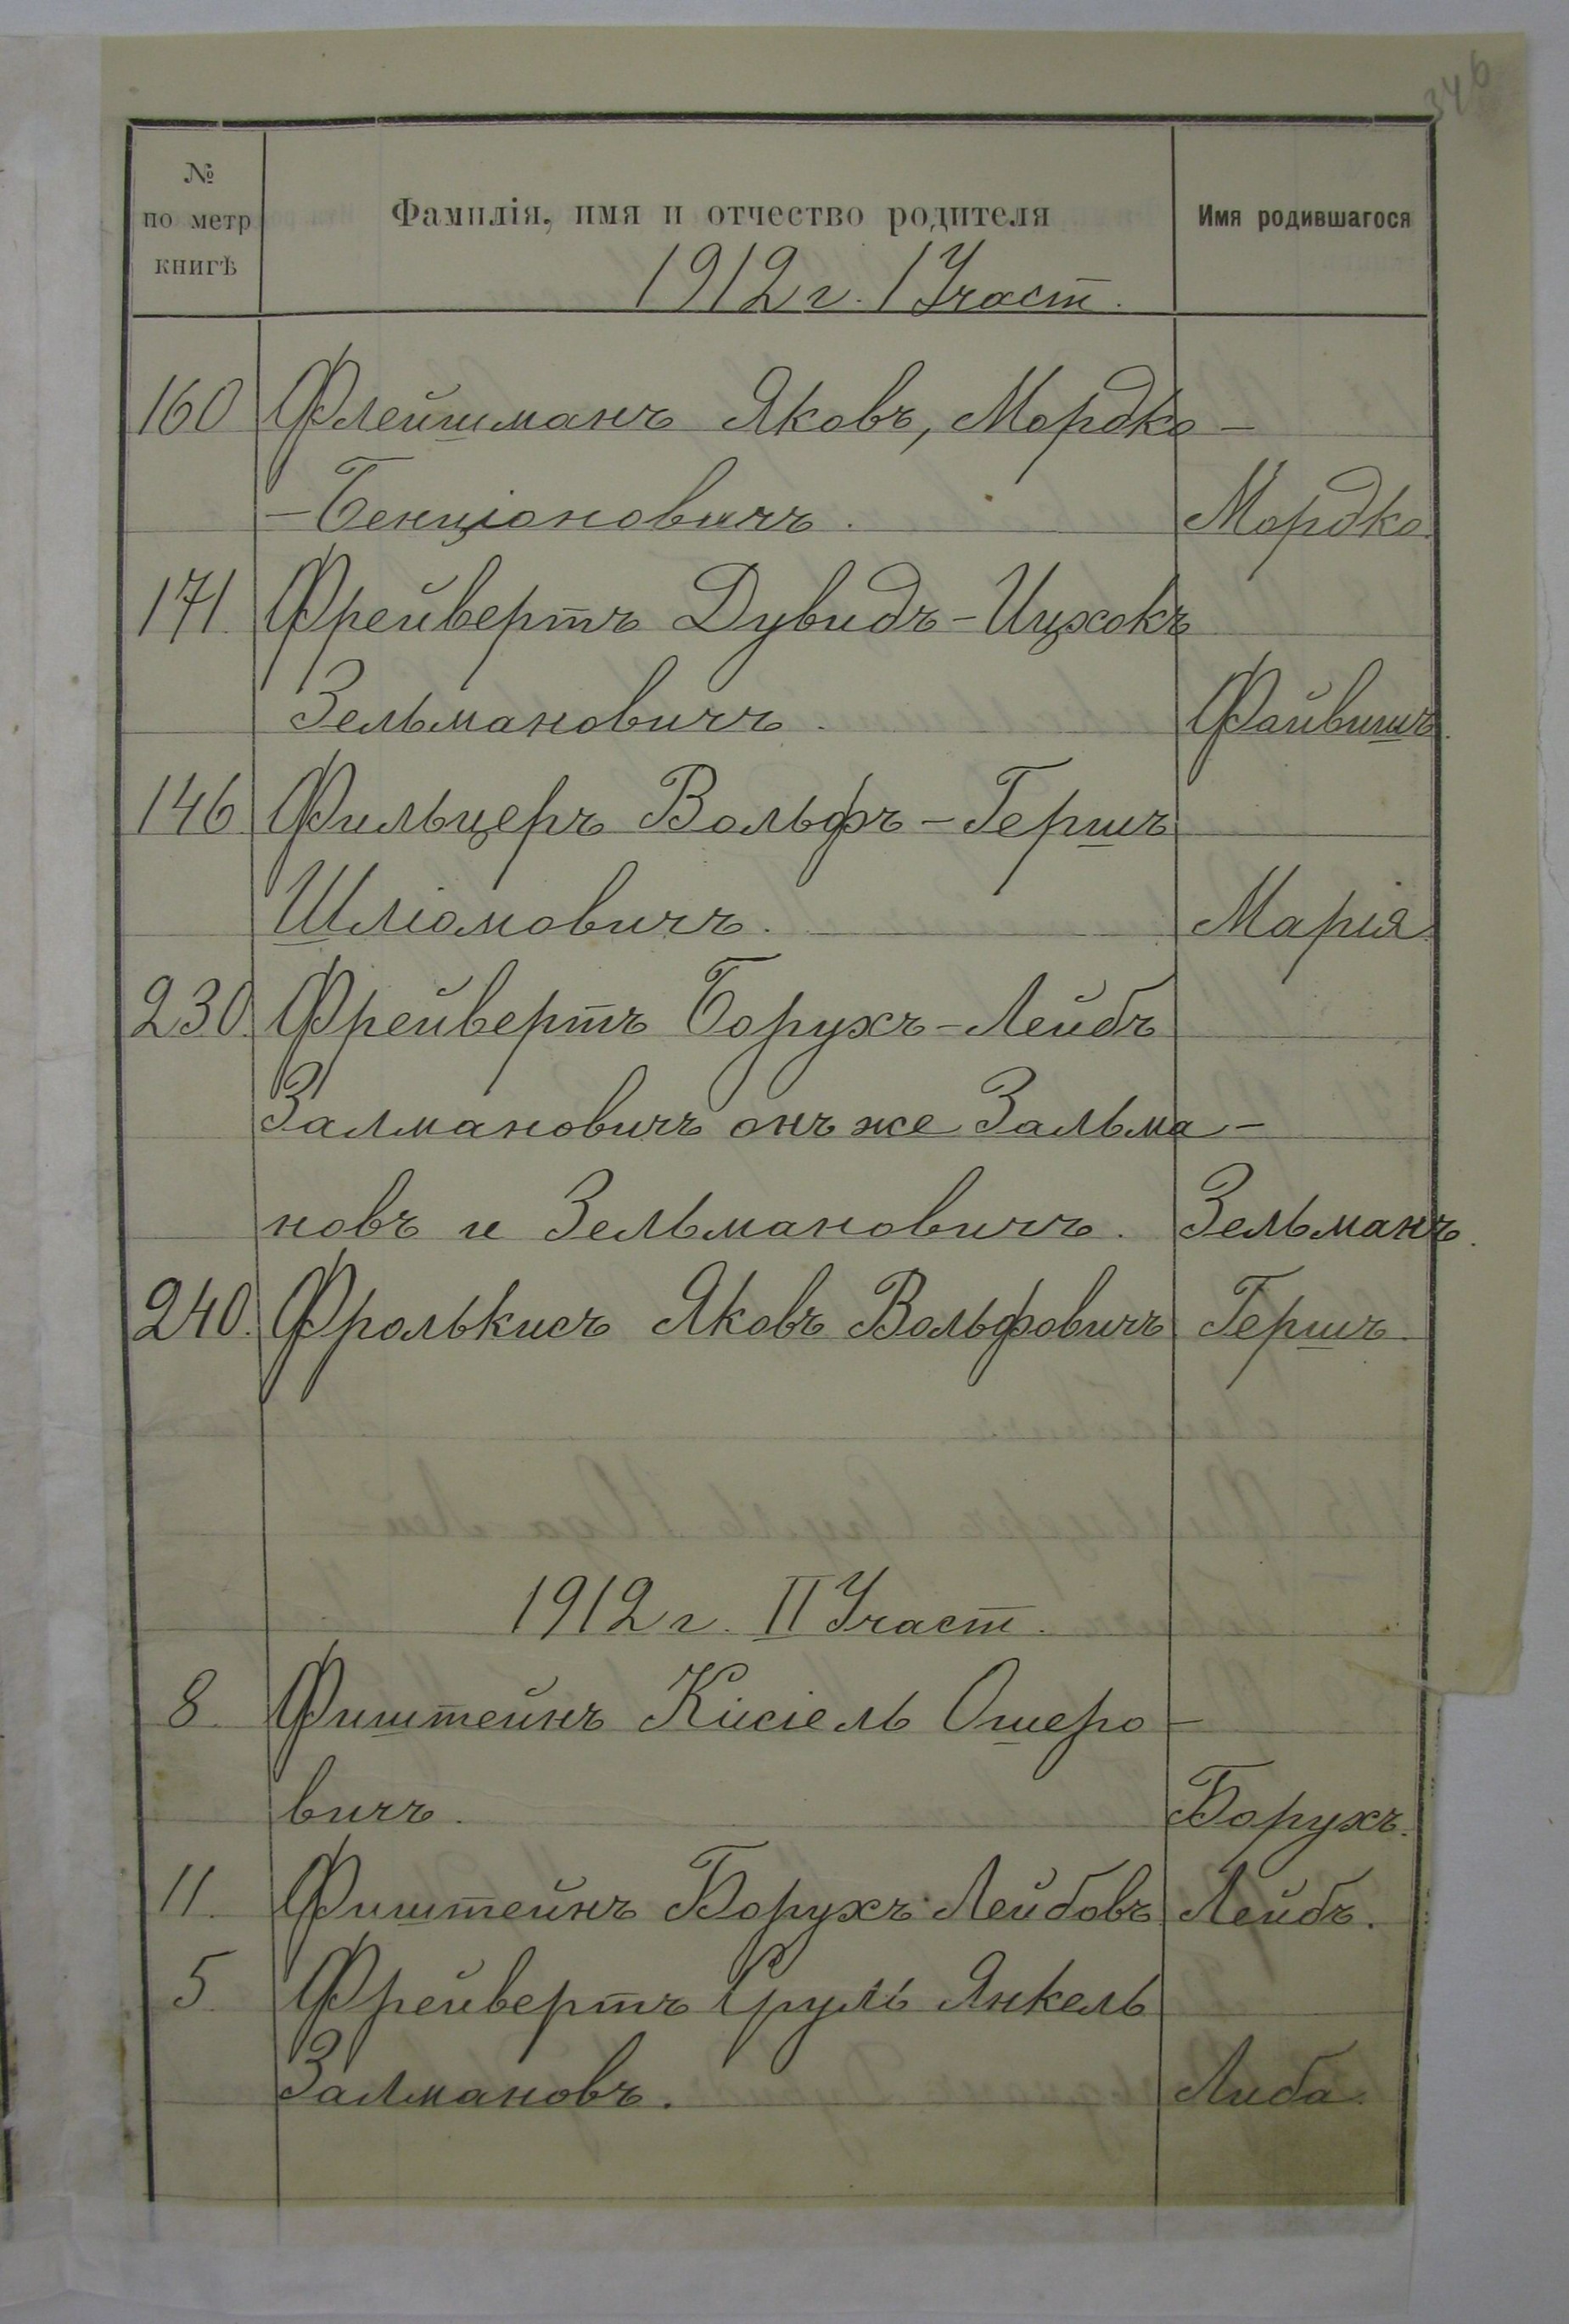 346
№ по метр книгѣ
Фамилія, имя и отчество родителя
Имя родившагося
1912 г. I Участ.
160 Флейшманъ Яковъ, Мордко-
-Бенціоновичъ. Мордко.
171. Фрейвертъ Дувидъ-Ицхокъ
Зельмановичъ. Файвишъ.
146 Фильцеръ Вольфъ-Гершъ
Шліомовичъ. Марія.
230. Фрейвертъ Борухъ-Лейбъ
Залмановичъ онъ же Зальма-
новъ и Зельмановичъ. Зельманъ.
240. Фролькисъ Яковъ Вольфовичъ Гершъ.
1912 г. II Участ.
8. Фиштейнъ Кисіель Ошеро-
вичъ. Борухъ.
11. Фиштейнъ Борухъ Лейбовъ Лейбъ.
5. Фрейвертъ Сруль Янкель
Залмановъ. Либа.